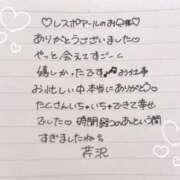 ♡レスポアールのお〇様♡
ありがとうございました♡
やっと会えてすごーく
嬉しかったです♪お仕事
お忙しい中本当にありがと♡
たくさんいちゃいちゃできて幸せ
でした♡時間経つのあという間
すぎましたね
芹沢